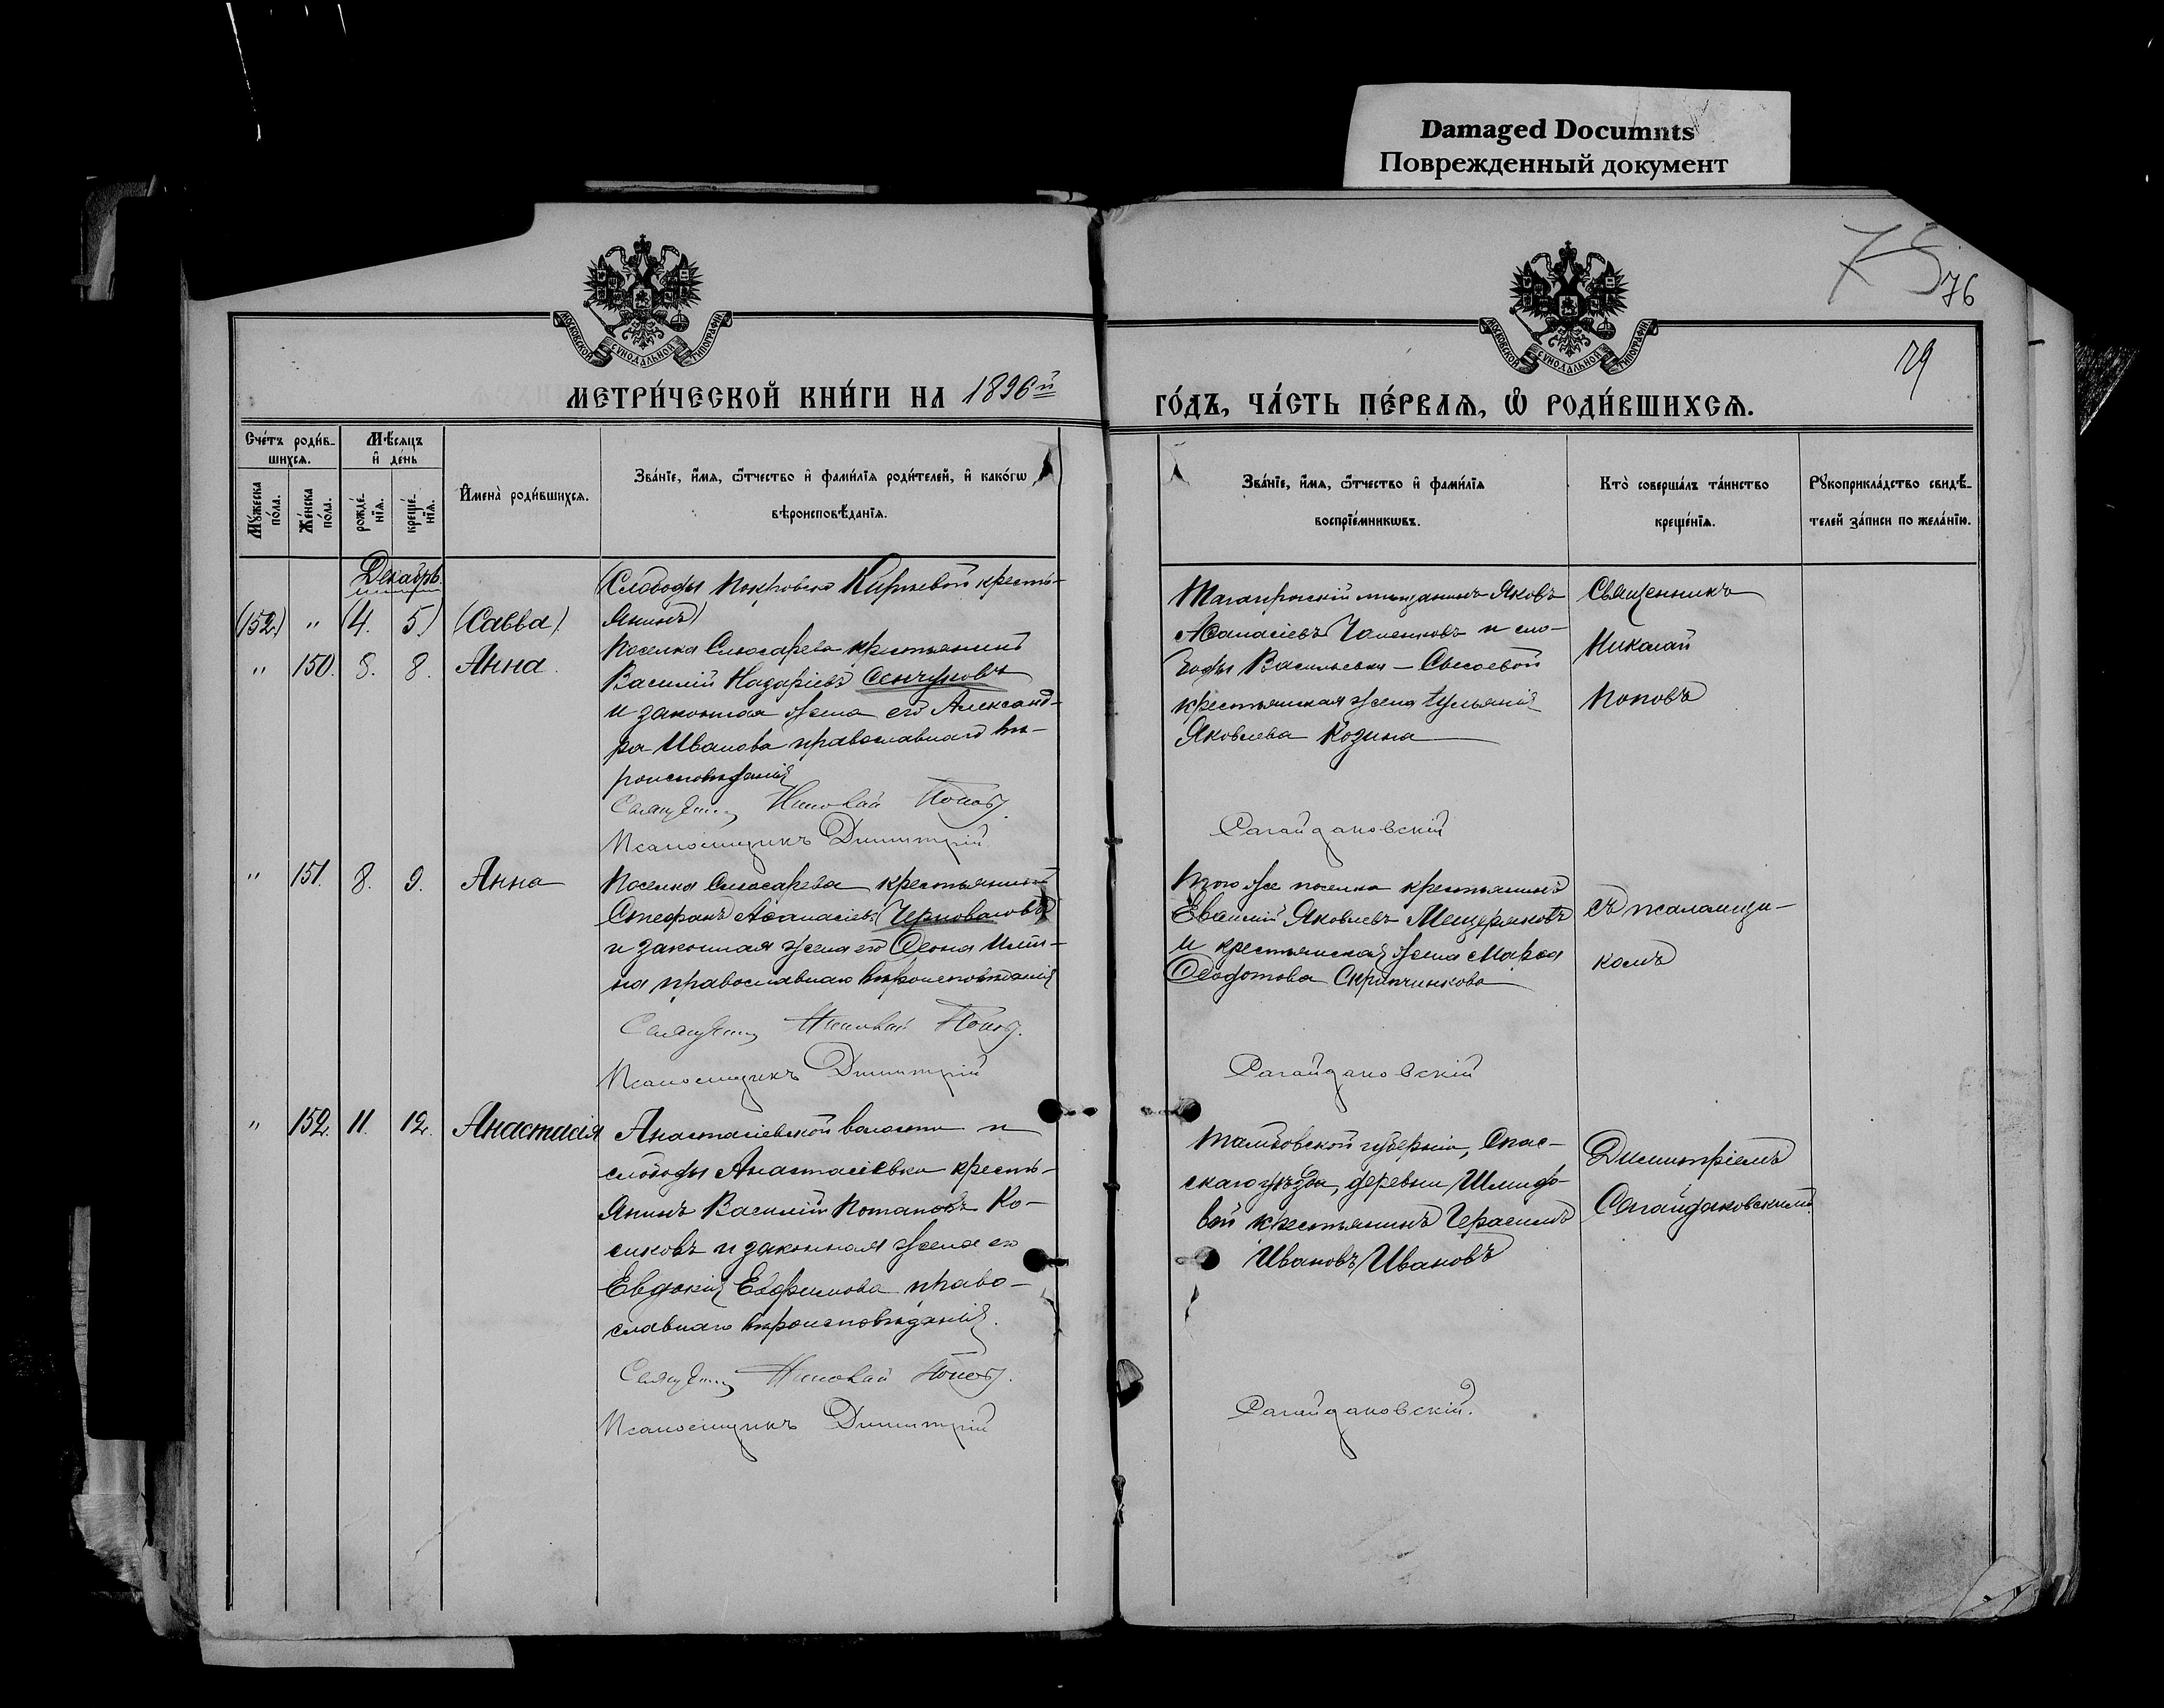 Damaged Documnts
Поврежденный документ
75
76
79
МОСКОВСКОЙ СѴНОДАЛЬНОЙ ТИПОГРАФІИ
МОСКОВСКОЙ СѴНОДАЛЬНОЙ ТИПОГРАФІИ
МЕТРИ́ЧЕСКОЙ КНИ́ГИ НА 1896й
ГО́ДЪ, ЧА́СТЬ ПЕ́РВАѦ, Ѡ҆ РОДИ́ВШИХСѦ.
Сче́тъ роди́в-
шихсѧ.
Мѣ́сѧцъ
и҆ де́нь
Мꙋ́жеска
по́ла.
Же́нска
по́ла.
рожде́-
нїѧ.
креще́-
нїѧ.
И҆мена̀ роди́вшихсѧ.
Зва́нїе, и҆́мѧ, ѻ҆́тчество и҆ фами́лїѧ роди́телей, и҆ како́гѡ
вѣроисповѣ́данїѧ.
Зва́нїе, и҆́мѧ, ѻ҆́тчество и҆ фами́лїѧ
воспрїе́мникѡвъ.
Кто̀ соверша́лъ та́инство
креще́нїѧ.
Рꙋкоприкла́дство свидѣ́-
телей за́писи по жела́нїю.
Декабрь.
(152.) " (4. 5.) (Савва).
(Слободы Покровско Киреевой кресть-
янинъ)
" 150. 8. 8. Анна.
Поселка Слюсарева крестьянинъ
Василій Назаріевъ Сенчуковъ
и законная жена его Александ-
ра Иванова православнаго вѣ-
роисповѣданія
Священникъ Николай Поповъ.
Псаломщикъ Димитрій
Таганрогскій мѣщанинъ Яковъ
Аѳанасіевъ и сло-
боды Васильевки –
крестьянская жена
Яковлева Козина
Сагайдаковскій
Священникъ
Николай
Поповъ
" 151. 8. 9. Анна
Поселка Слюсарева крестьянинъ
Стефанъ Аѳанасіевъ
и законная жена его
на православнаго вѣроисповѣданія
Священникъ Николай Поповъ.
Псаломщикъ Димитрій
Того же поселка крестьянинъ
Евѳимій Яковлевъ Мещеряковъ
и крестьянская жена Марѳа
Ѳеодотова
Сагайдаковскій
съ псаломщи-
комъ
" 152. 11. 12. Анастасія
Анастасіевской волости и
слободы Анастасіевки кресть-
янинъ Василій Потаповъ Ко-
сиковъ и законная жена его
Евдокія Евфимова право-
славнаго вѣроисповѣданія.
Священникъ Николай Поповъ.
Псаломщикъ Димитрій
Тамбовской губерніи, Спас-
скаго уѣзда, деревни
крестьянинъ Герасимъ
Ивановъ Ивановъ
Сагайдаковскій.
Димитріемъ
Сагайдаковскимъ.